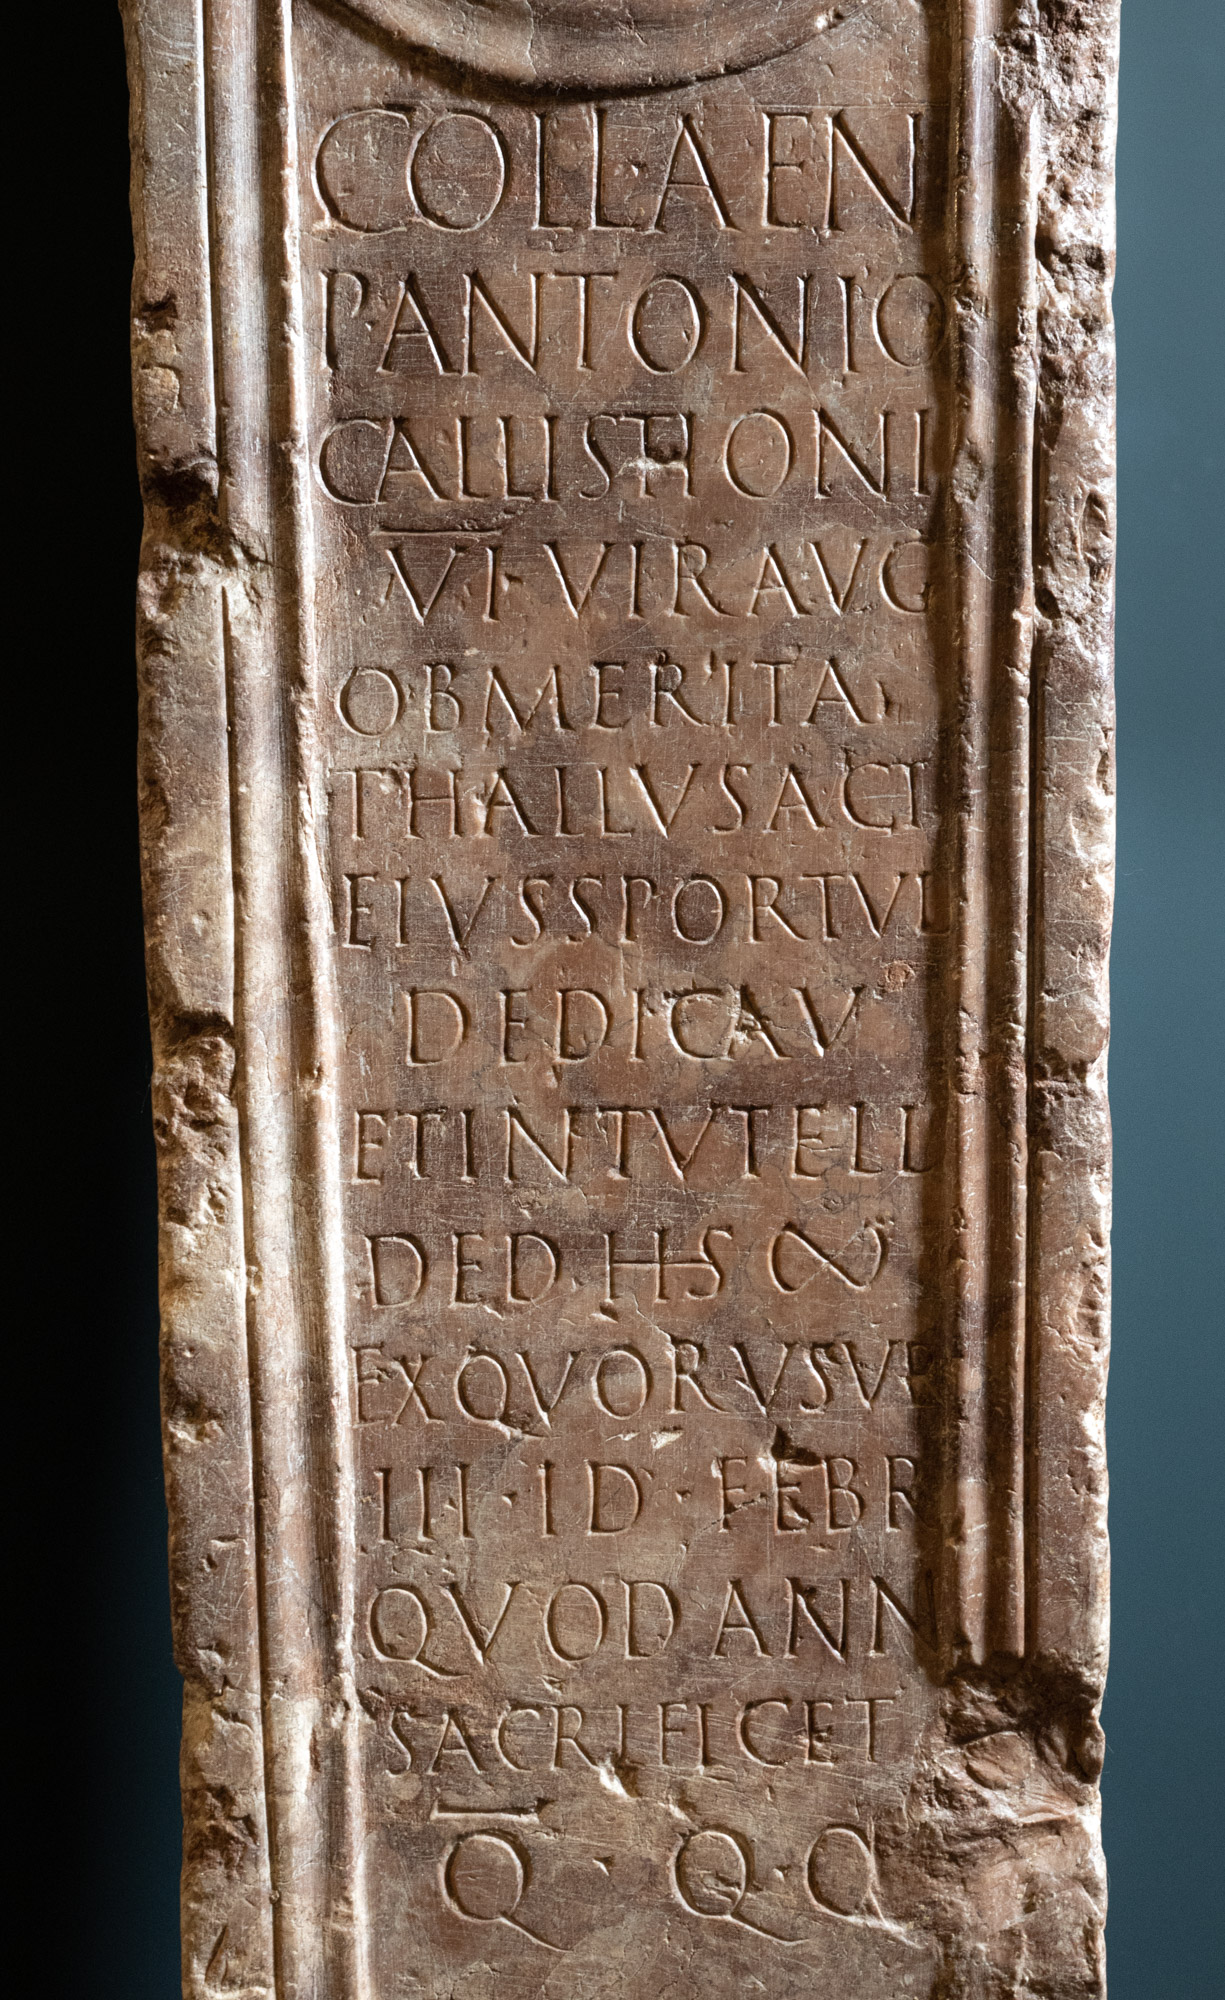 COLL·AEN
P·ANTONIO
CALLISTIONI
VI·VIR AVG
OB MERITA
THALLVS ACT
EIVS SPORTVL
DEDICAV
ET IN TVTELL
DED HS ∞
EX QVOR VSVR
III·ID·FEBR
QVOD ANN
SACRIFICET
Q·Q·Q